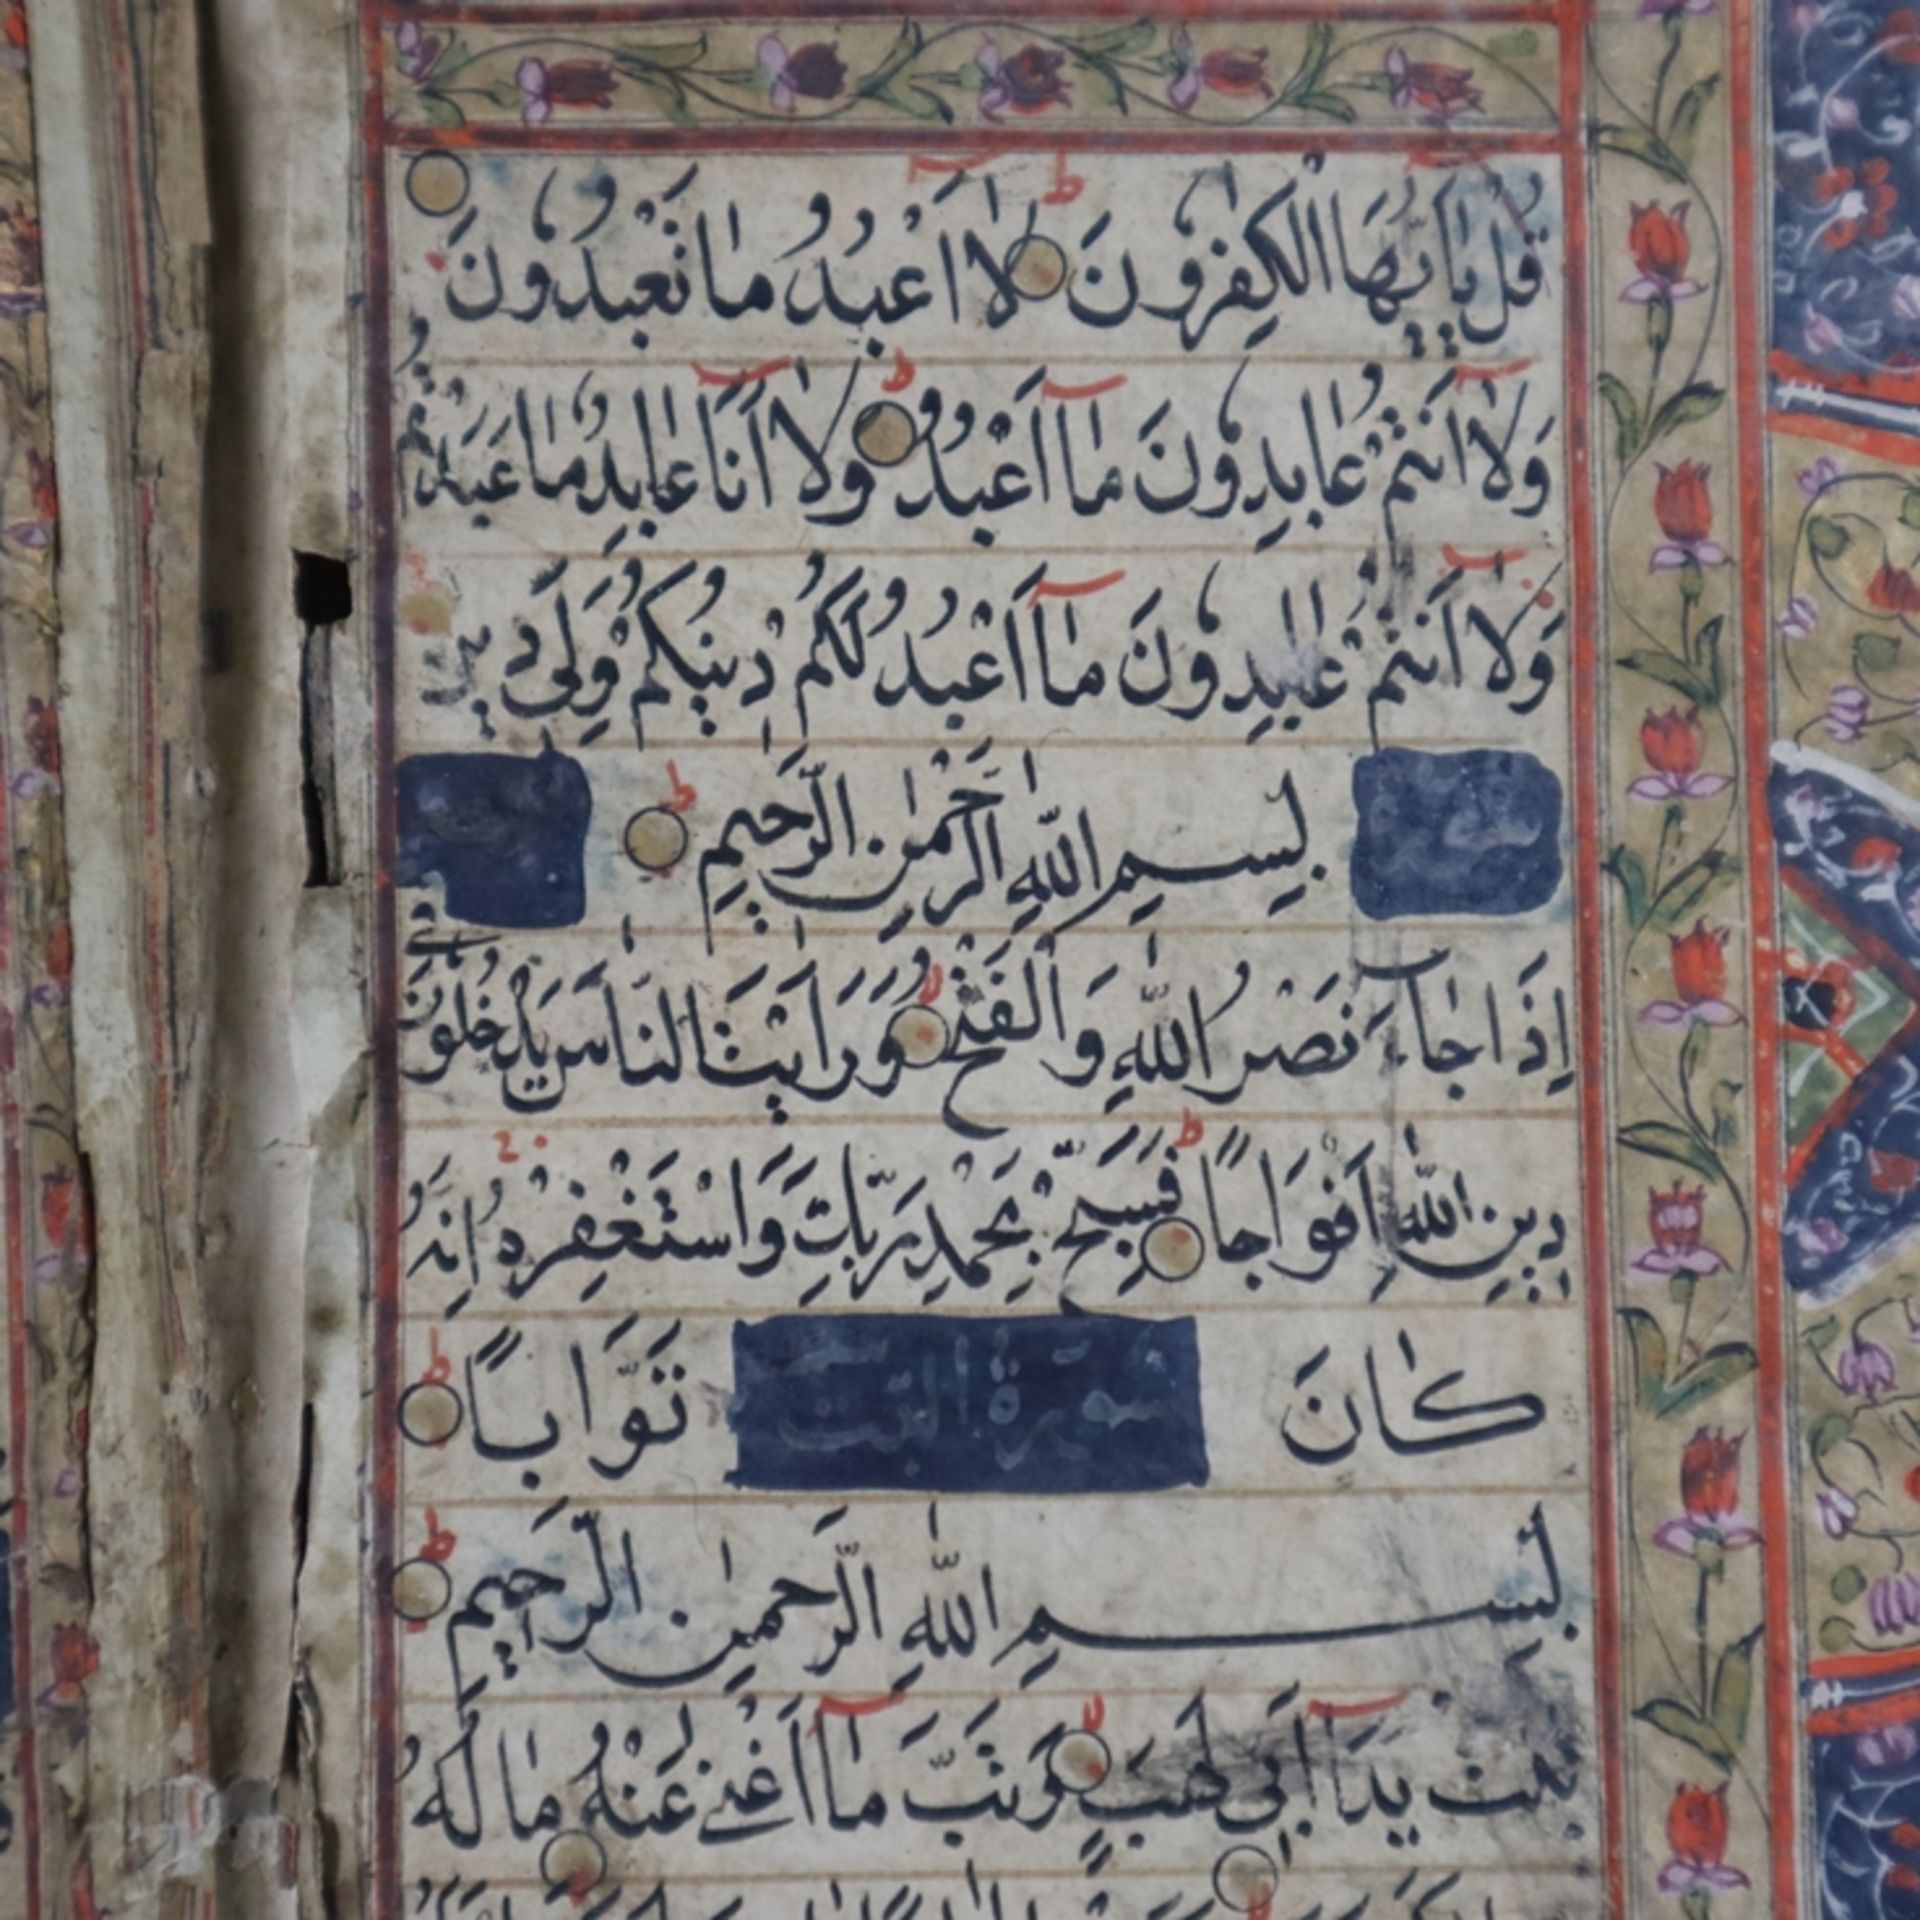 قُلْ يٰٓاَيُّهَا الْكٰفِرُونَ لَآ اَعْبُدُ مَا تَعْبُدُونَ
وَلَآ اَنْتُمْ عَابِدُونَ مَآ اَعْبُدُ وَلَآ اَنَا عَابِدٌ مَا عَبَدْتُمْ
وَلَآ اَنْتُمْ عٰبِدُونَ مَآ اَعْبُدُ لَكُمْ دِينُكُمْ وَلِىَ دِينِ
بِسْمِ اللّٰهِ الرَّحْمٰنِ الرَّحِيمِ
اِذَا جَآءَ نَصْرُ اللّٰهِ وَالْفَتْحُ وَرَاَيْتَ النَّاسَ يَدْخُلُونَ فِى
دِينِ اللّٰهِ اَفْوَاجًا فَسَبِّحْ بِحَمْدِ رَبِّكَ وَاسْتَغْفِرْهُ اِنَّهُ
كَانَ سورة التبت تَوَّابًا
بِسْمِ اللّٰهِ الرَّحْمٰنِ الرَّحِيمِ
تَبَّتْ يَدَآ اَبِى لَهَبٍ وَتَبَّ مَآ اَغْنٰى عَنْهُ مَالُهُ